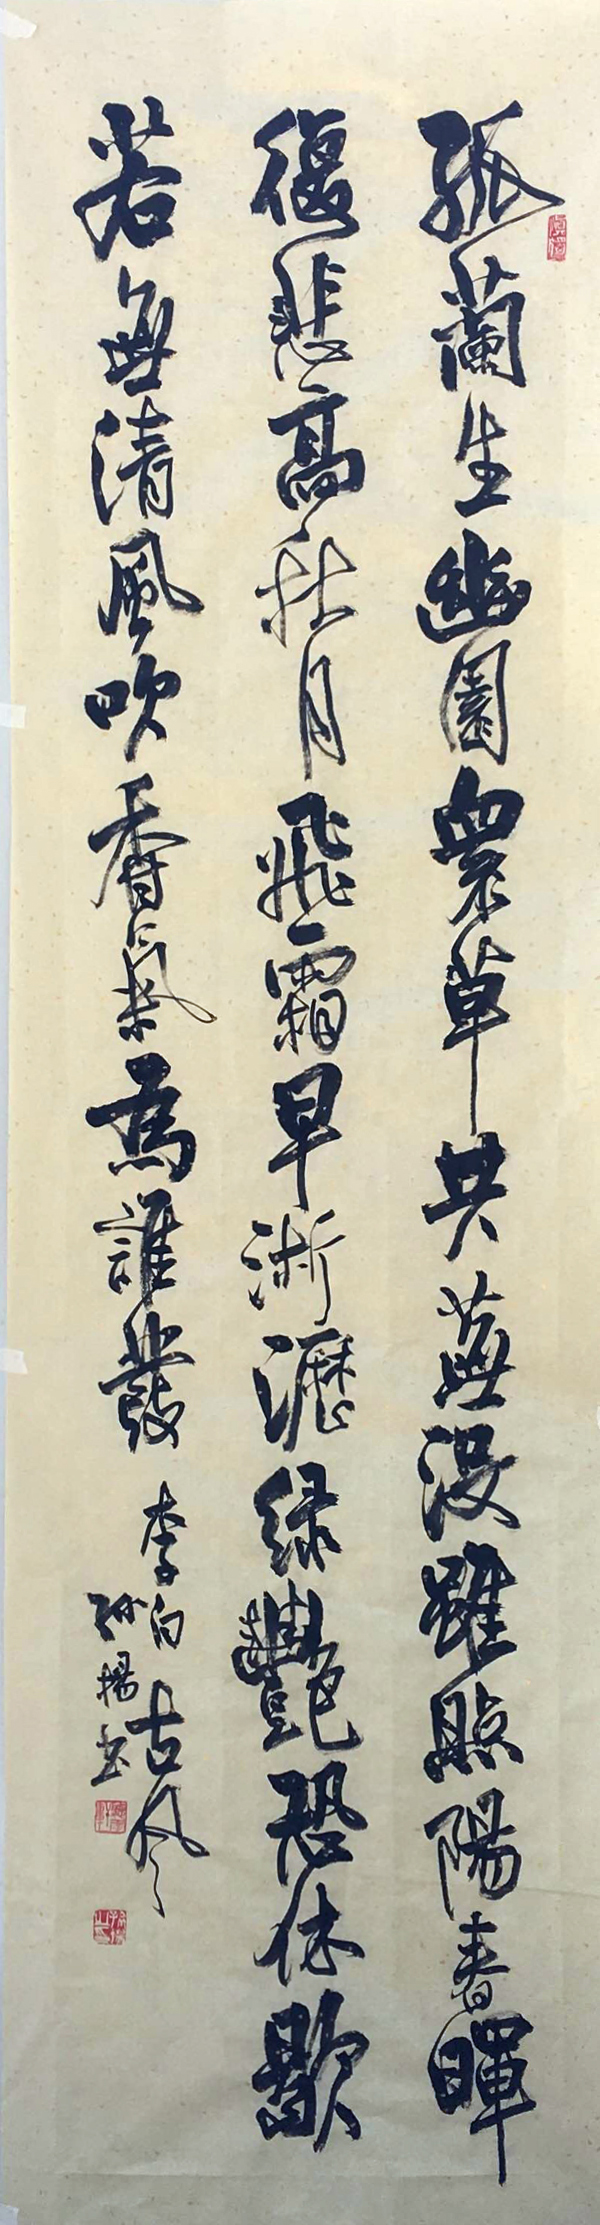 孤蘭生幽園眾草共蕪沒雖照陽春暉
復悲高秋月飛霜早淅瀝緑艷恐休歇
若無清風吹香氣為誰發
李白古风
孙揚书